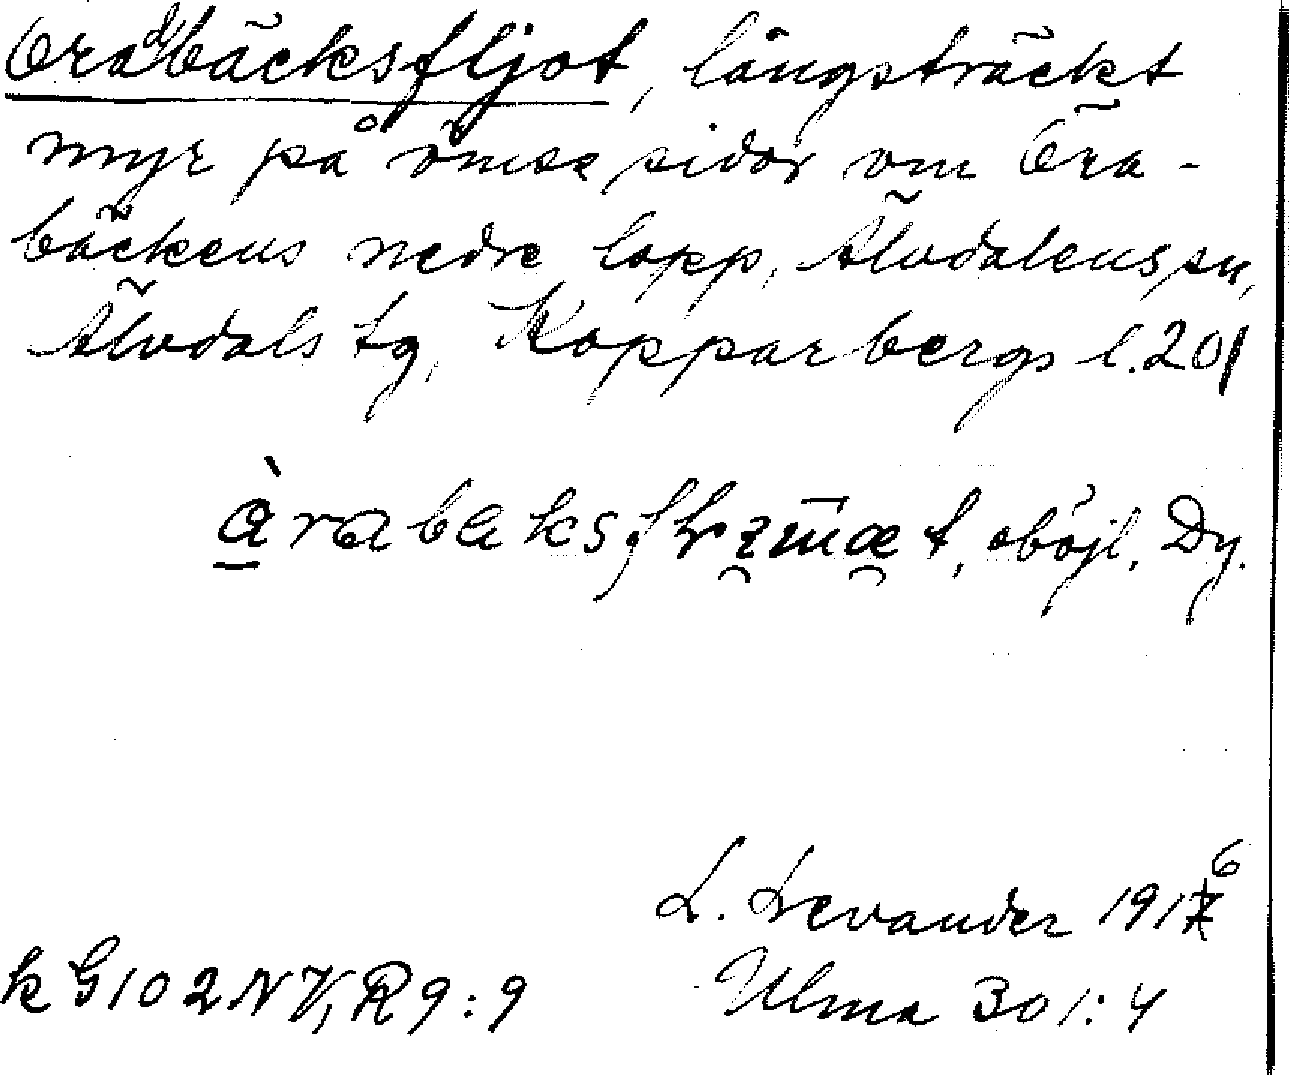 Örabäcksfljot, långsträckt
myr på ömse sidor om Öra-
bäckens nedre lopp, Älvdalens sn,
Älvdals tg, Kopparbergs l. 201
oböjl. Dy.
L. Levander 1916
k G102NV, R9:9
Ulma 301:4